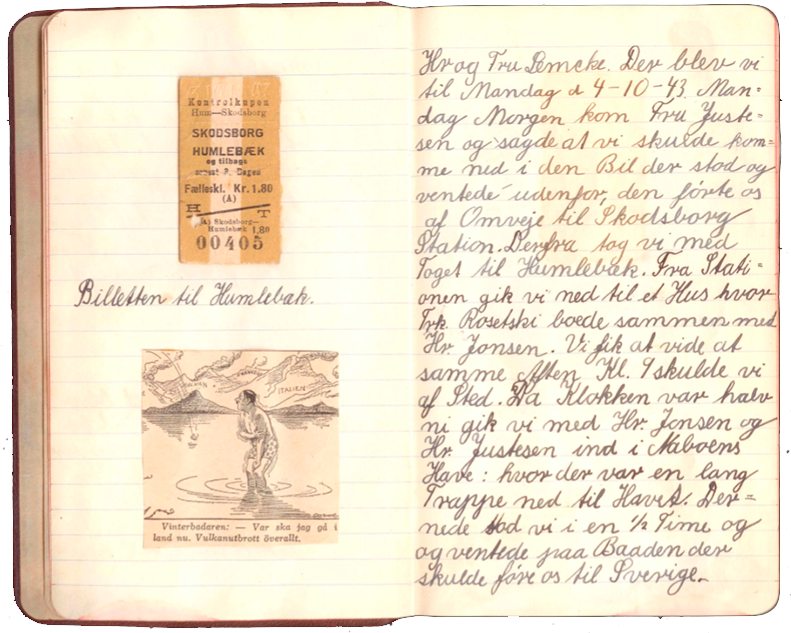 Kontrolkupon
Hum—Skodsborg
SKODSBORG
HUMLEBÆK
og tilbage
senest 2. Dagen
Fælleskl. Kr. 1.80
(A)
H T
(A) Skodsborg—
Humlebæk 1,80
00405
Billetten til Humlebæk.
BALKAN
ITALIEN
Vinterbadaren: — Var ska jag gå i
land nu. Vulkanutbrott överallt.
Hr og Fru Lemcke. Der blev vi
til Mandag d 4-10-43. Man-
dag Morgen kom Fru Juste-
sen og sagde at vi skulde kom-
me ned i den Bil der stod og
ventede udenfor, den förte os
af Omveje til Skodsborg
Station. Derfra tog vi med
Toget til Humlebæk. Fra Stati-
onen gik vi ned til et Hus hvor
Frk. Rosetski boede sammen med
Hr. Jonsen. Vi fik at vide at
samme Aften Kl. 9 skulde vi
af Sted. Da Klokken var halv
ni gik vi med Hr. Jonsen og
Hr. Justesen ind i Naboens
Have: hvor der var en lang
Trappe ned til Havet. Der-
nede stod vi i en ½ Time og
og ventede paa Baaden der
skulde före os til Sverige.